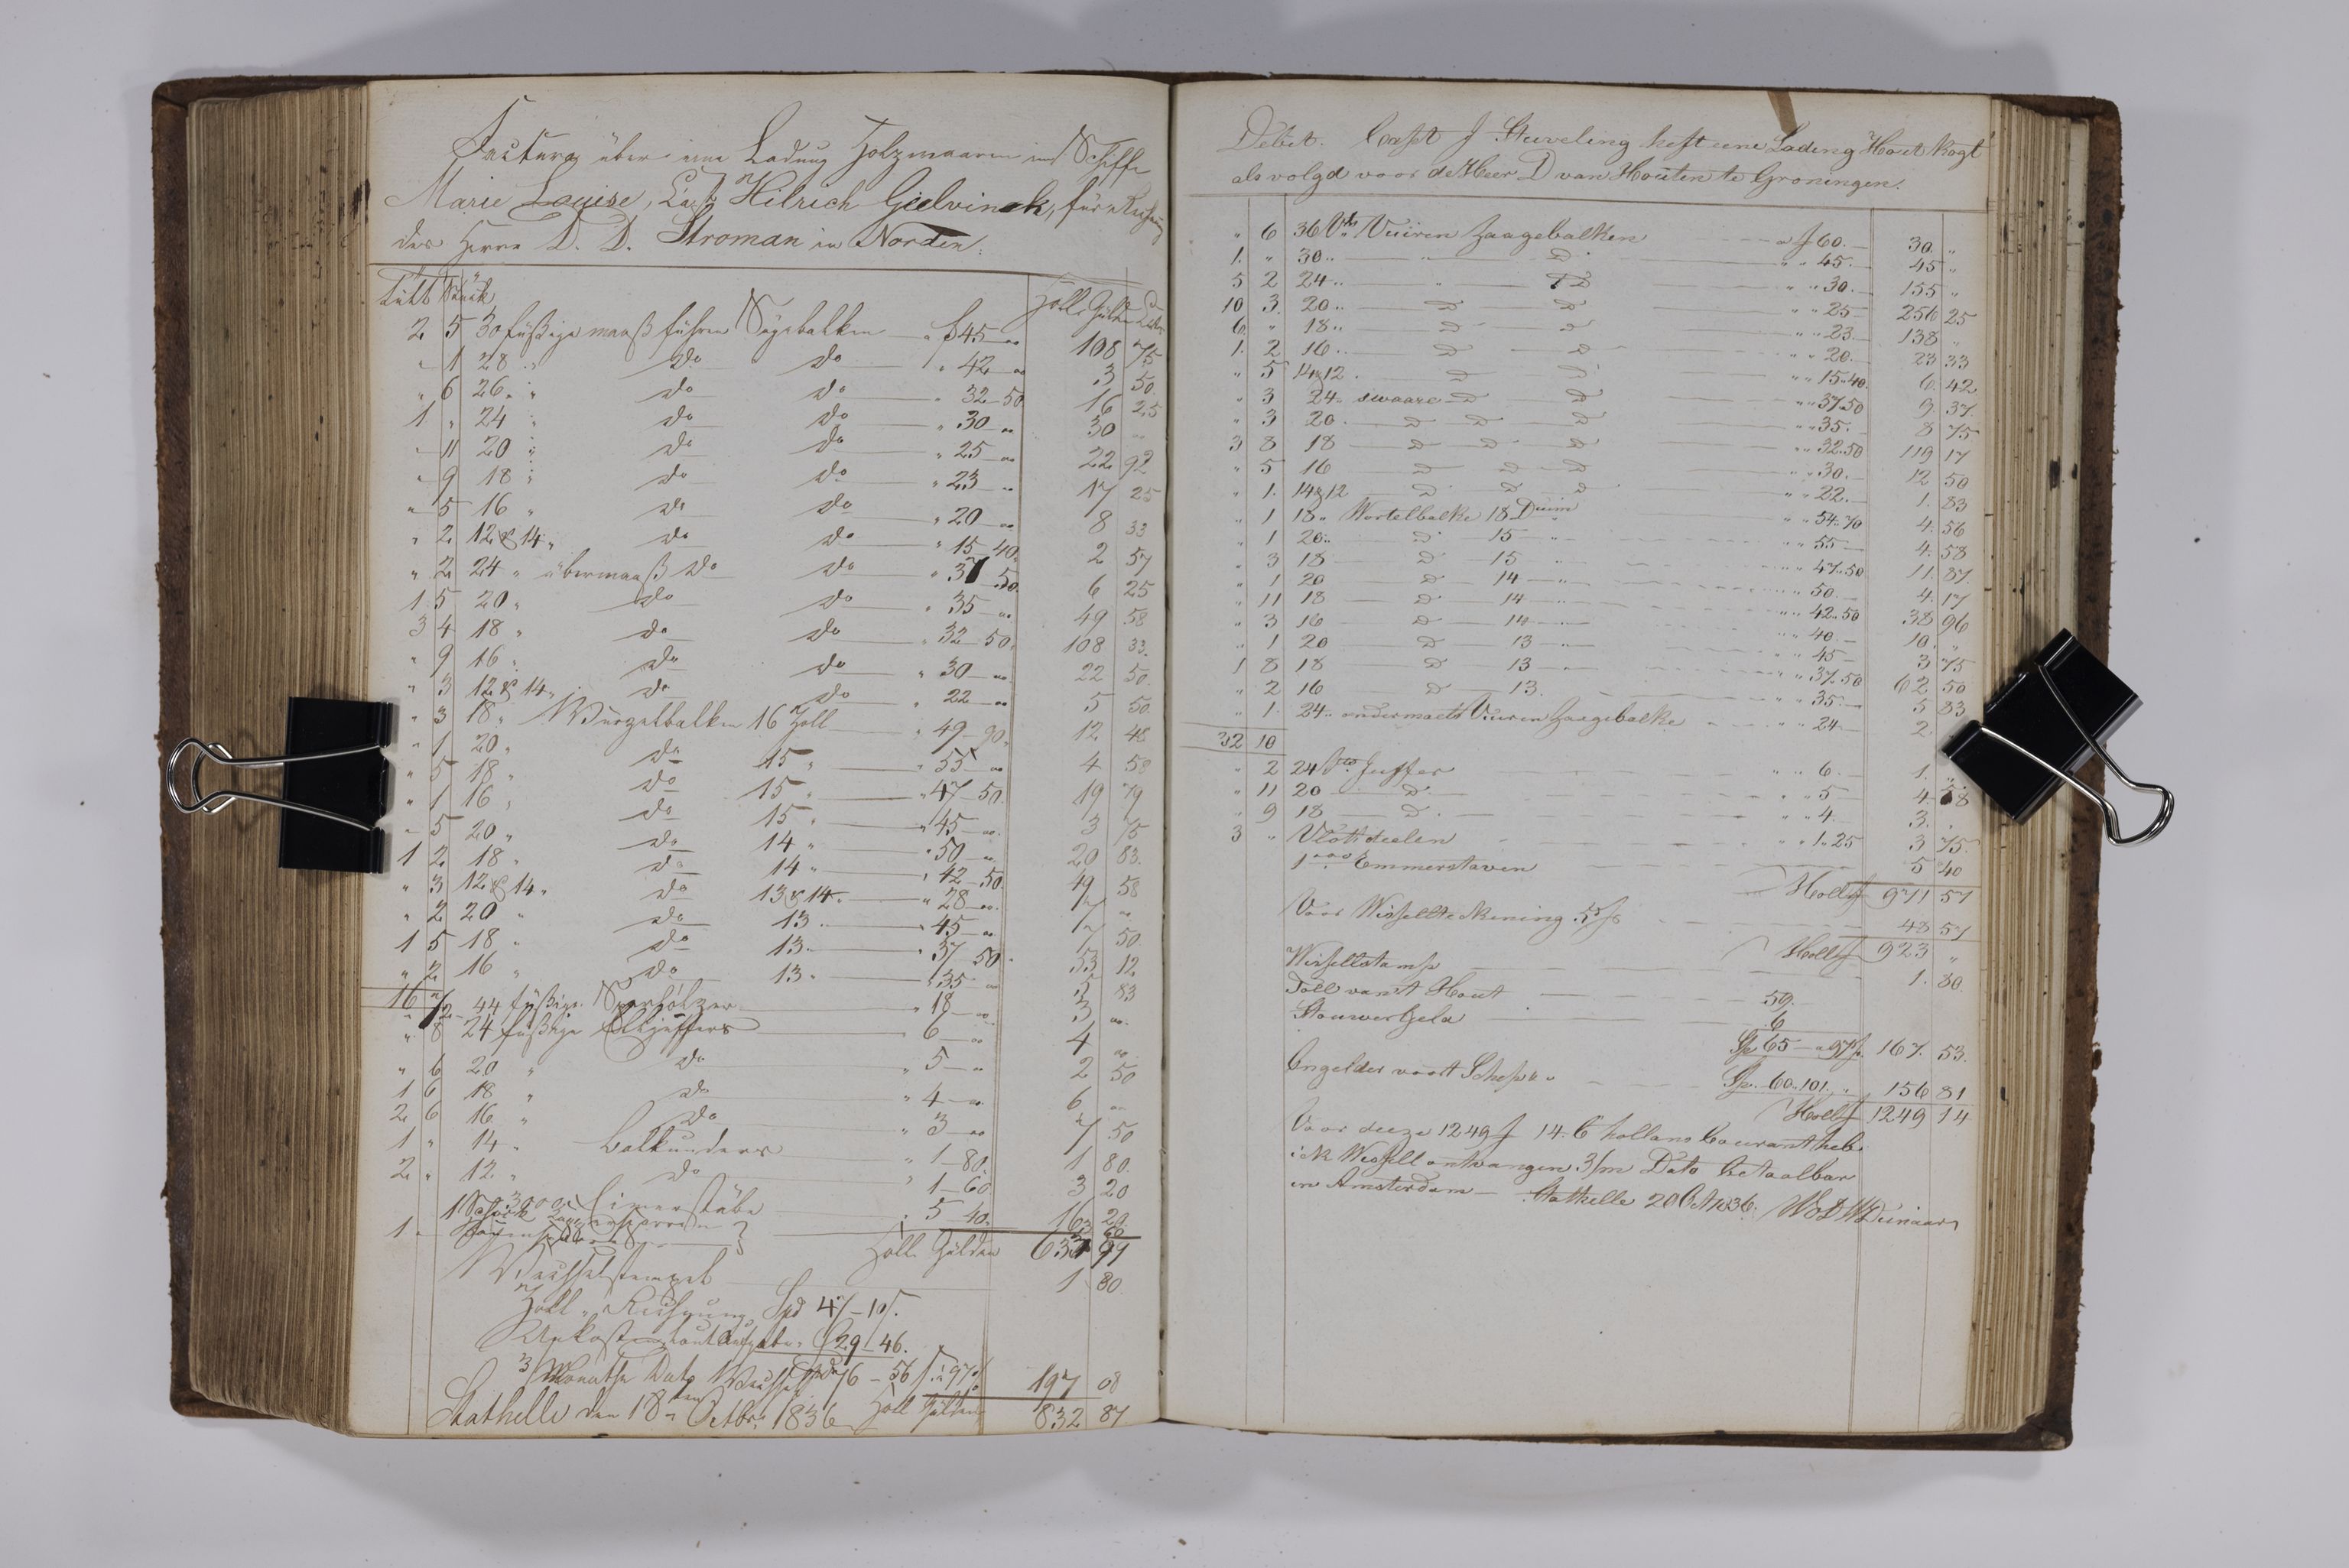 Factura über eine Ladung Holzwaaren ins Schiffe
Marie Louise, Capt. Hilrich Gielvinck, für Rechnung
des Herrn D. D. Stroman in Norden.
Tült Stück Holl. Gulden
2 5 30 füßige maaß führen Sägebalken " f 45 " 108 75
" 1 28 " do do " 42 " 3 50
" 6 26 " do do " 32 50 16 25
1 " 24 " do do " 30 " 30 "
" 11 20 " do do " 25 " 22 92
" 9 18 " do do " 23 " 17 25
" 5 16 " do do " 20 " 8 33
" 2 12 & 14 " do do " 15 40 2 57
" 2 24 " übermaaß do do " 37 50 6 25
1 5 20 " do do " 35 " 49 58
3 4 18 " do do " 32 50 108 33
" 9 16 " do do " 30 " 22 50
" 3 12 & 14 " do do " 22 " 5 50
" 3 18 " Wurzelbalken 16 Zoll " 49 90 12 48
" 1 20 " do 15 " " 55 " 4 58
" 5 18 " do 15 " " 47 50 19 79
" 1 16 " do 15 " " 45 " 3 75
" 5 20 " do 14 " " 50 " 20 83
1 2 18 " do 14 " " 42 50 49 58
" 3 12 & 14 " do 13 & 14 " " 28 " 7 "
" 2 20 " do 13 " " 45 " 7 50
1 5 18 " do 13 " " 37 50 53 12
" 2 16 " do 13 " " 35 " 5 83
16 "
" 2 44 füßige Sparhölzer " 18 " 3 "
" 8 24 füßige Juffers " 6 " 4 "
" 6 20 " do " 5 " 2 50
1 6 18 " do " 4 " 6 "
2 6 16 " do " 3 " 7 50
1 " 14 " Balkunders " 1 80 1 80
2 " 12 " do " 1 60 3 20
3000 Eimerstäbe " 5 40 16 20
1 "
Holl. Gülden 633 99
Wechselstempel 1 80
Zoll " Rechnung Spd 47 - 10
Unkosten laut Aufgabe " 29 - 46.
3 Monaths Dato Wechsel Spd 76 - 56 ß à 97 197 08
Stathelle den 18ten Octbr. 1836 Holl Gülden 832 87
Debit. Capt J Stuveling heft eene Lading Hout kogt
als volgd voor de Heer D van Houten te Groningen.
" 6 36 Vts Vuiren Zaagebalken a f 60. 30. "
1. " 30 " " D " " 45. 45 "
5 2 24 " " D " " 30. 155 "
10 3 20 " D D " " 25 256 25
6 " 18 " D D " " 23. 138 "
1. 2 16 " D D " " 20. 23 33
" 5 14 & 12 D D " " 15.40. 6. 42
" 3 24 " swaare D D " " 37.50 9. 37.
" 3 20 D D D " " 35. 8 75
3 8 18 D D D " " 32.50 119 17
" 5 16 D D D " " 30. 12 50
" 1. 14 & 12 D D D " " 22. 1. 83
" 1 18 " Wortelbalke 18 Duim " " 54.70 4. 56
" 1 20 " D 15 " " " 55 4. 58
" 3 18 D 15 " " " 47.50 11. 87.
" 1 20 D 14 " " " 50. 4. 17
" 11 18 D 14 " " " 42.50 38 96
" 3 16 D 14 " " " 40. 10. "
" 1 20 D 13 " " " 45 3 75
1 8 18 D 13 " " " 37.50 62 50
" 2 16 D 13. " " 35. 5 83
" 1. 24 " ondermaets Vuiren Zaagebalke " " 24 2.
32 10
" 2 24 Juffer " " 6. 1. "
" 11 20 D " " 5 4. 58
" 9 18 D " " 4. 3. "
3 " Vlottdeelen " " 1.25 3 75.
1000 Emmerstaven 5 40
Hollf 971 57
Voor Wissellteikening 5 % 48 57
Hollf 923 "
Wissellstamp 1. 80.
Toll van't Hout 59.
Stouwer Geld 6
Sp 65 a 97 ß. 167. 53.
Ongelder voort Schep " Sp. 60.101. " 156 81
Hollf 1249 14
Voor deeze 1249 f 14. C hollans Courant heb
ick Wissell ontvangen 3/m Dato betaalbar
in Amsterdam - Stathelle 20 Oct 1836.